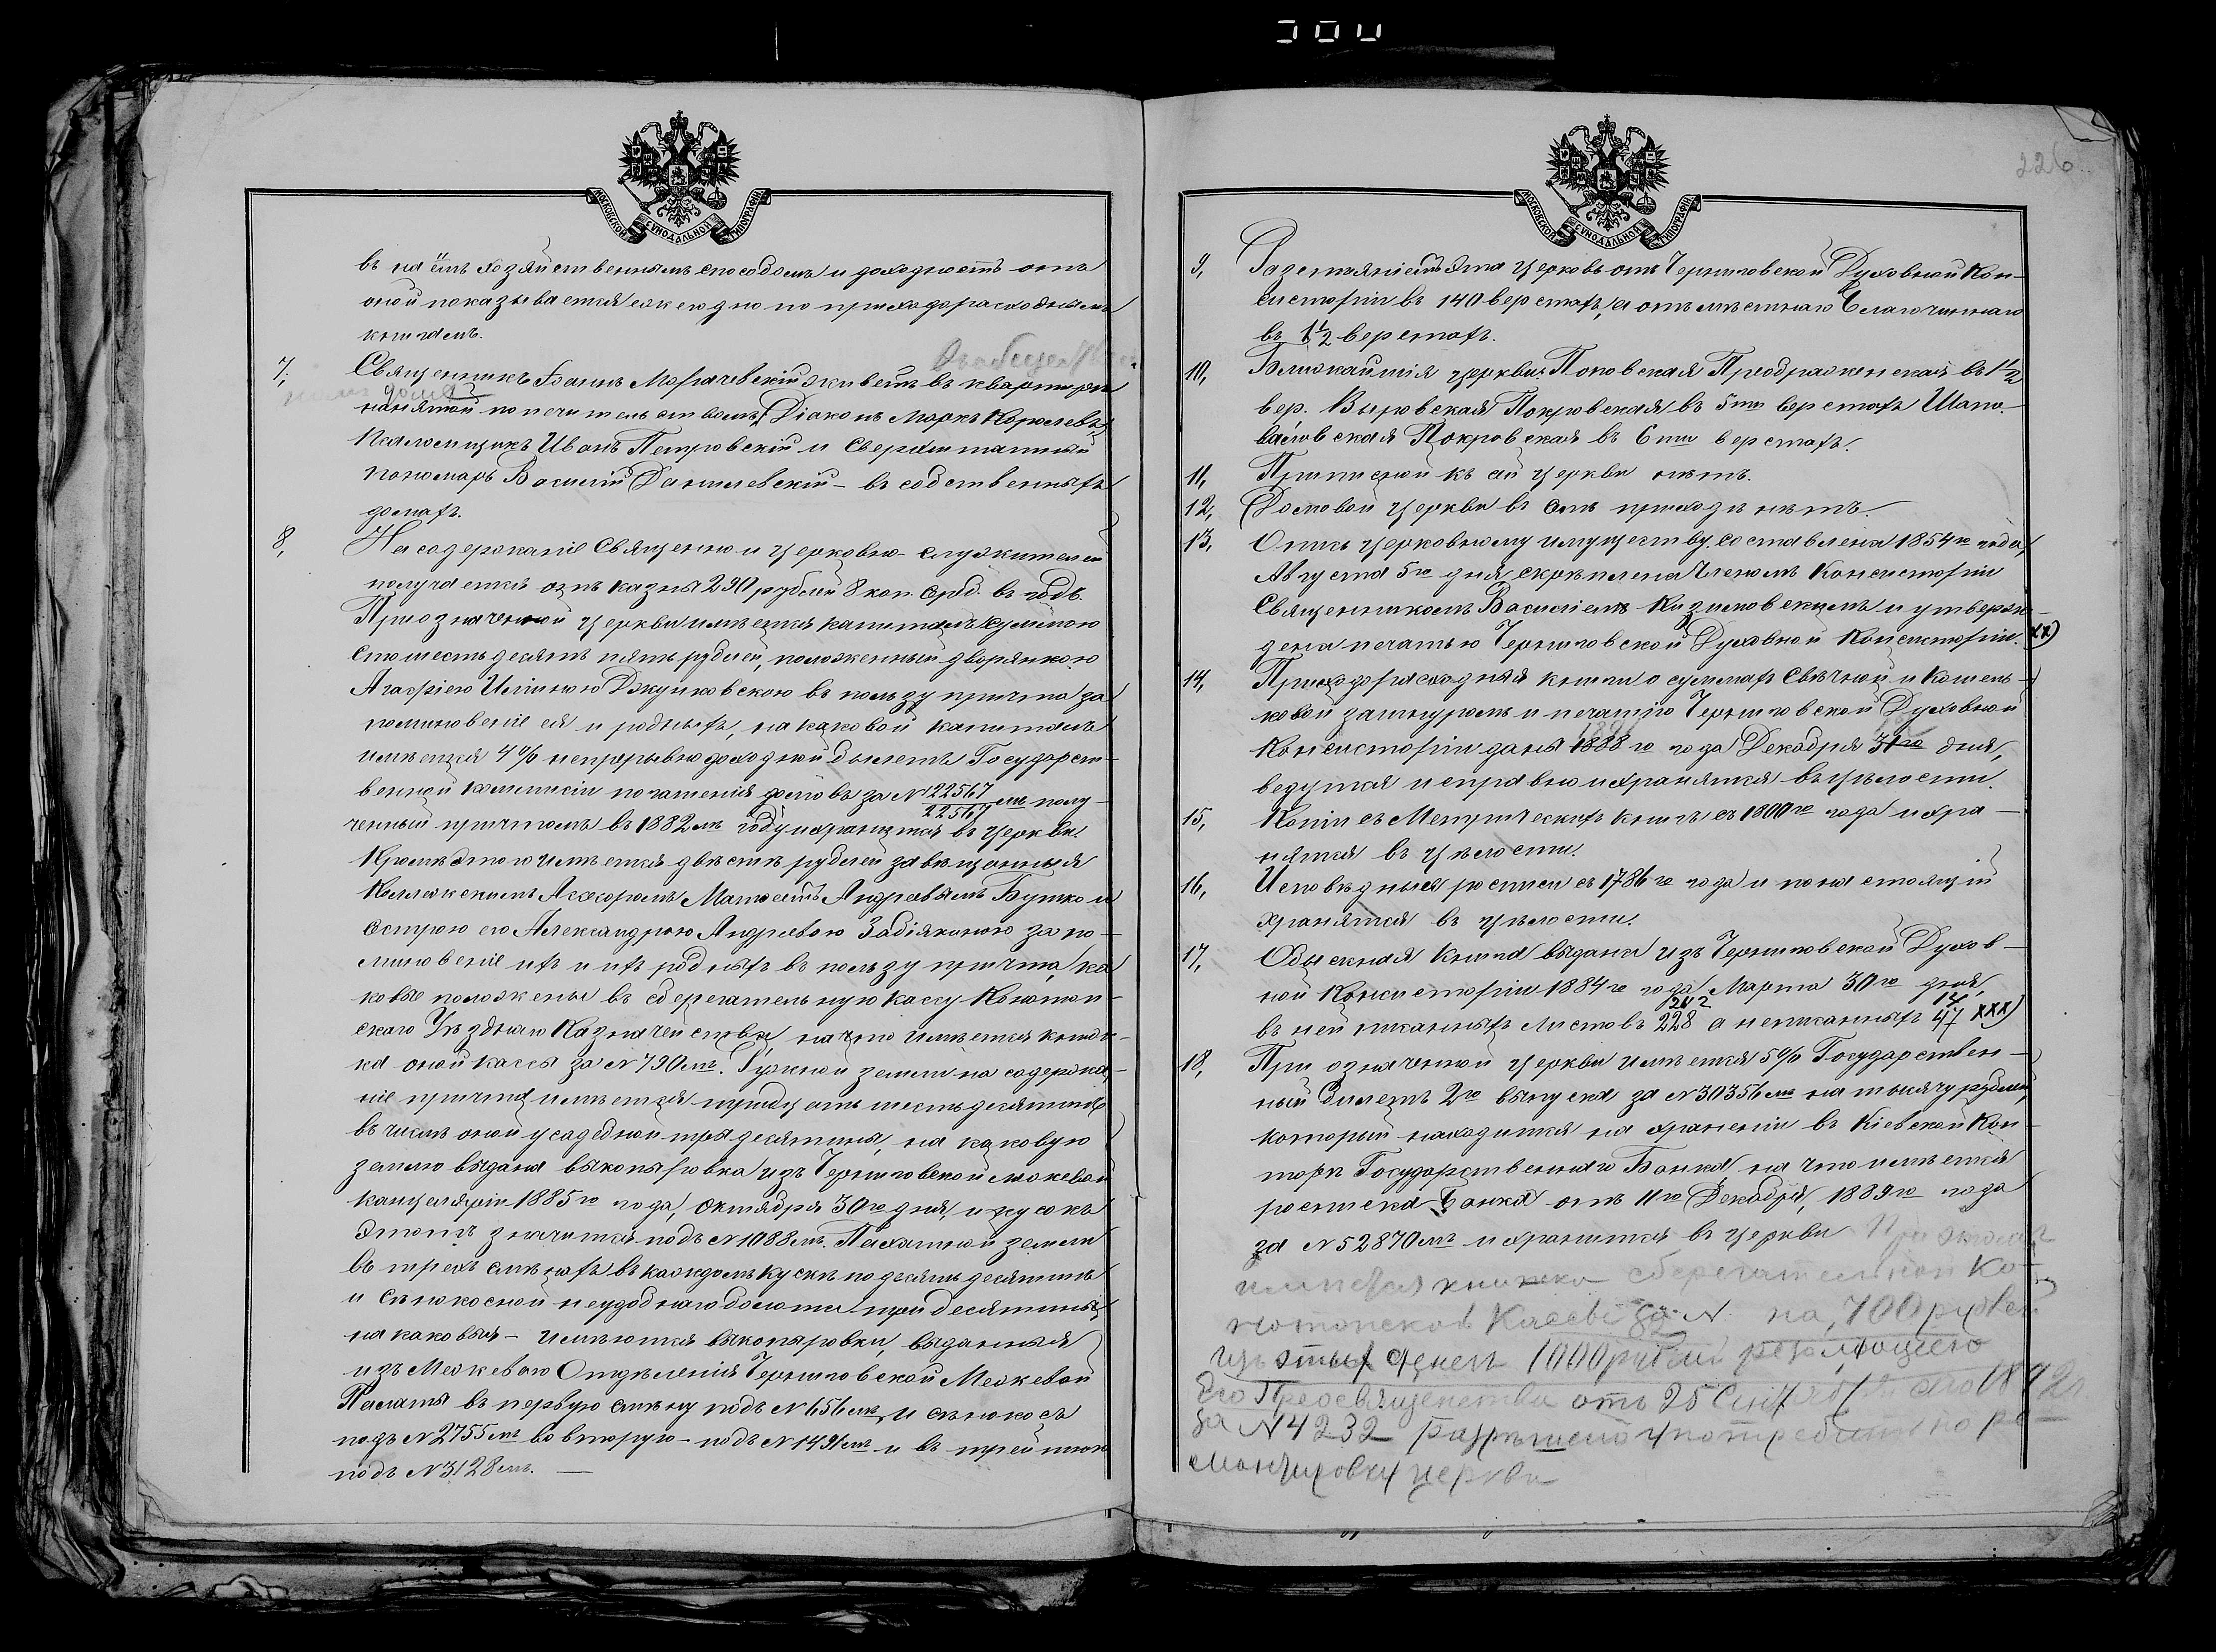 МОСКОВСКОЙ СѴНОДАЛЬНОЙ ТИПОГРАФІИ
въ наёмъ хозяйственнымъ способомъ и доходность отъ
оной показывается ежегодно по приходорасходнымъ
книгамъ.
7, Священникъ Іоаннъ живетъ въ квартирѣ
домѣ
нанятой попечительствомъ, Діаконъ Маркъ Королевъ,
Псаломщикъ Иванъ Петровскій и Сверхштатный
пономарь Василій Данилевскій – въ собственныхъ
домахъ.
8, На содержаніе Священно и церковно-служителей
получается изъ казны 290 рублей 8 коп. сереб. въ годъ.
При означенной церкви имѣется капиталъ суммою
сто шестьдесятъ пять рублей, положенный дворянкою
Агафіею Джунковскою въ пользу причта за
поминовеніе ея и родныхъ, на каковой капиталъ
имѣется 4% непрерывно доходной билетъ Государст-
венной коммисіи погашенія долговъ за № 22567/22567 мъ полу-
ченный причтомъ въ 1882мъ году и хранится въ церкви.
Кромѣ этого имѣется двѣстѣ рублей завѣщанныя
Коллежскимъ Ассесоромъ Андреевымъ Бутко и
сестрою его Александрою Андреевою Забіякиною за по-
миновеніе ихъ и ихъ родныхъ въ пользу причта, ка
ковые положены въ сберегательную кассу Конотоп-
скаго Уѣзднаго Казначейства, на что имѣется книж-
ка оной кассы за № 790мъ. Ружной земли на содержа-
ніе причта имѣется тридцать шесть десятинъ
въ числѣ оной усадебной три десятины, на каковую
землю выдана выкопыровка изъ Черниговской межевой
канцеляріи 1885го года, Октября 30го дня, и кусокъ
этотъ значится подъ № 1088мъ. Пахатной земли
въ трехъ смѣнахъ въ каждомъ кускѣ по десять десятинъ
и сѣнокосной неудобнаго болота три десятины,
на каковыя – имѣются выкопыровки, выданныя
изъ Межеваго Отдѣленія Черниговской Межевой
Палаты въ первую смѣну подъ № 656мъ и сѣнокосъ
подъ № 2755мъ во вторую – подъ № 1491мъ и въ третью
подъ № 3128мъ. —
МОСКОВСКОЙ СѴНОДАЛЬНОЙ ТИПОГРАФІИ
226
9, Разстояніемъ эта церковь отъ Черниговской Духовной Кон-
систоріи въ 140 верстахъ, а отъ мѣстнаго Благочиннаго
въ 1½ верстахъ.
10, Ближайшія церкви: Поповская Преображенская въ 1½
вер. Выровская Покровская въ 5ти верстахъ Шапо-
валовская Покровская въ 6ти верстахъ.
11, Приписной къ сей церкви нѣтъ.
12, Домовой церкви въ семъ приходѣ нѣтъ.
13, Опись церковному имуществу составлена 1854го года,
Августа 5го дня, скрѣплена Членомъ Консисторіи
Священникомъ Василіемъ и утверж-
дена печатью Черниговской Духовной Консисторіи. хх)
14, Приходорасходныя книги о суммахъ Свѣчной и Кошель-
ковой за шнуромъ и печатію Черниговской Духовной
Консисторіи даны 1888го года Декабря 31го дня,
ведутся исправно и хранятся въ цѣлости.
15, Копіи съ Метрическихъ книгъ съ 1800го года и хра-
нятся въ цѣлости.
16, Исповѣдныя росписи съ 1786го года и по настоящій
хранятся въ цѣлости.
17, Обыскная книга выдана изъ Черниговской Духов-
ной Консисторіи 1884го года Марта 30го дня,
въ ней писанныхъ листовъ 228 а неписанныхъ 47 ххх)
18, При означенной церкви имѣется 5% Государствен-
ный билетъ 2го выпуска за № 30356мъ на тысячу рублей,
который находится на храненіи въ Кіевской Кон-
торѣ Государственнаго Банка, на что имѣется
росписка Банка отъ 11го Декабря, 1889го года
за № 52870мъ и хранится въ церкви
имѣется книжка сберегательной Ко-
нотопской Кассы за № на 700 рублей
изъ этихъ денегъ 1000 рублей резолюціею
Его Преосвященства отъ 25 1892
за № 4232 разрѣшено употребить на ре-
монтировку церкви